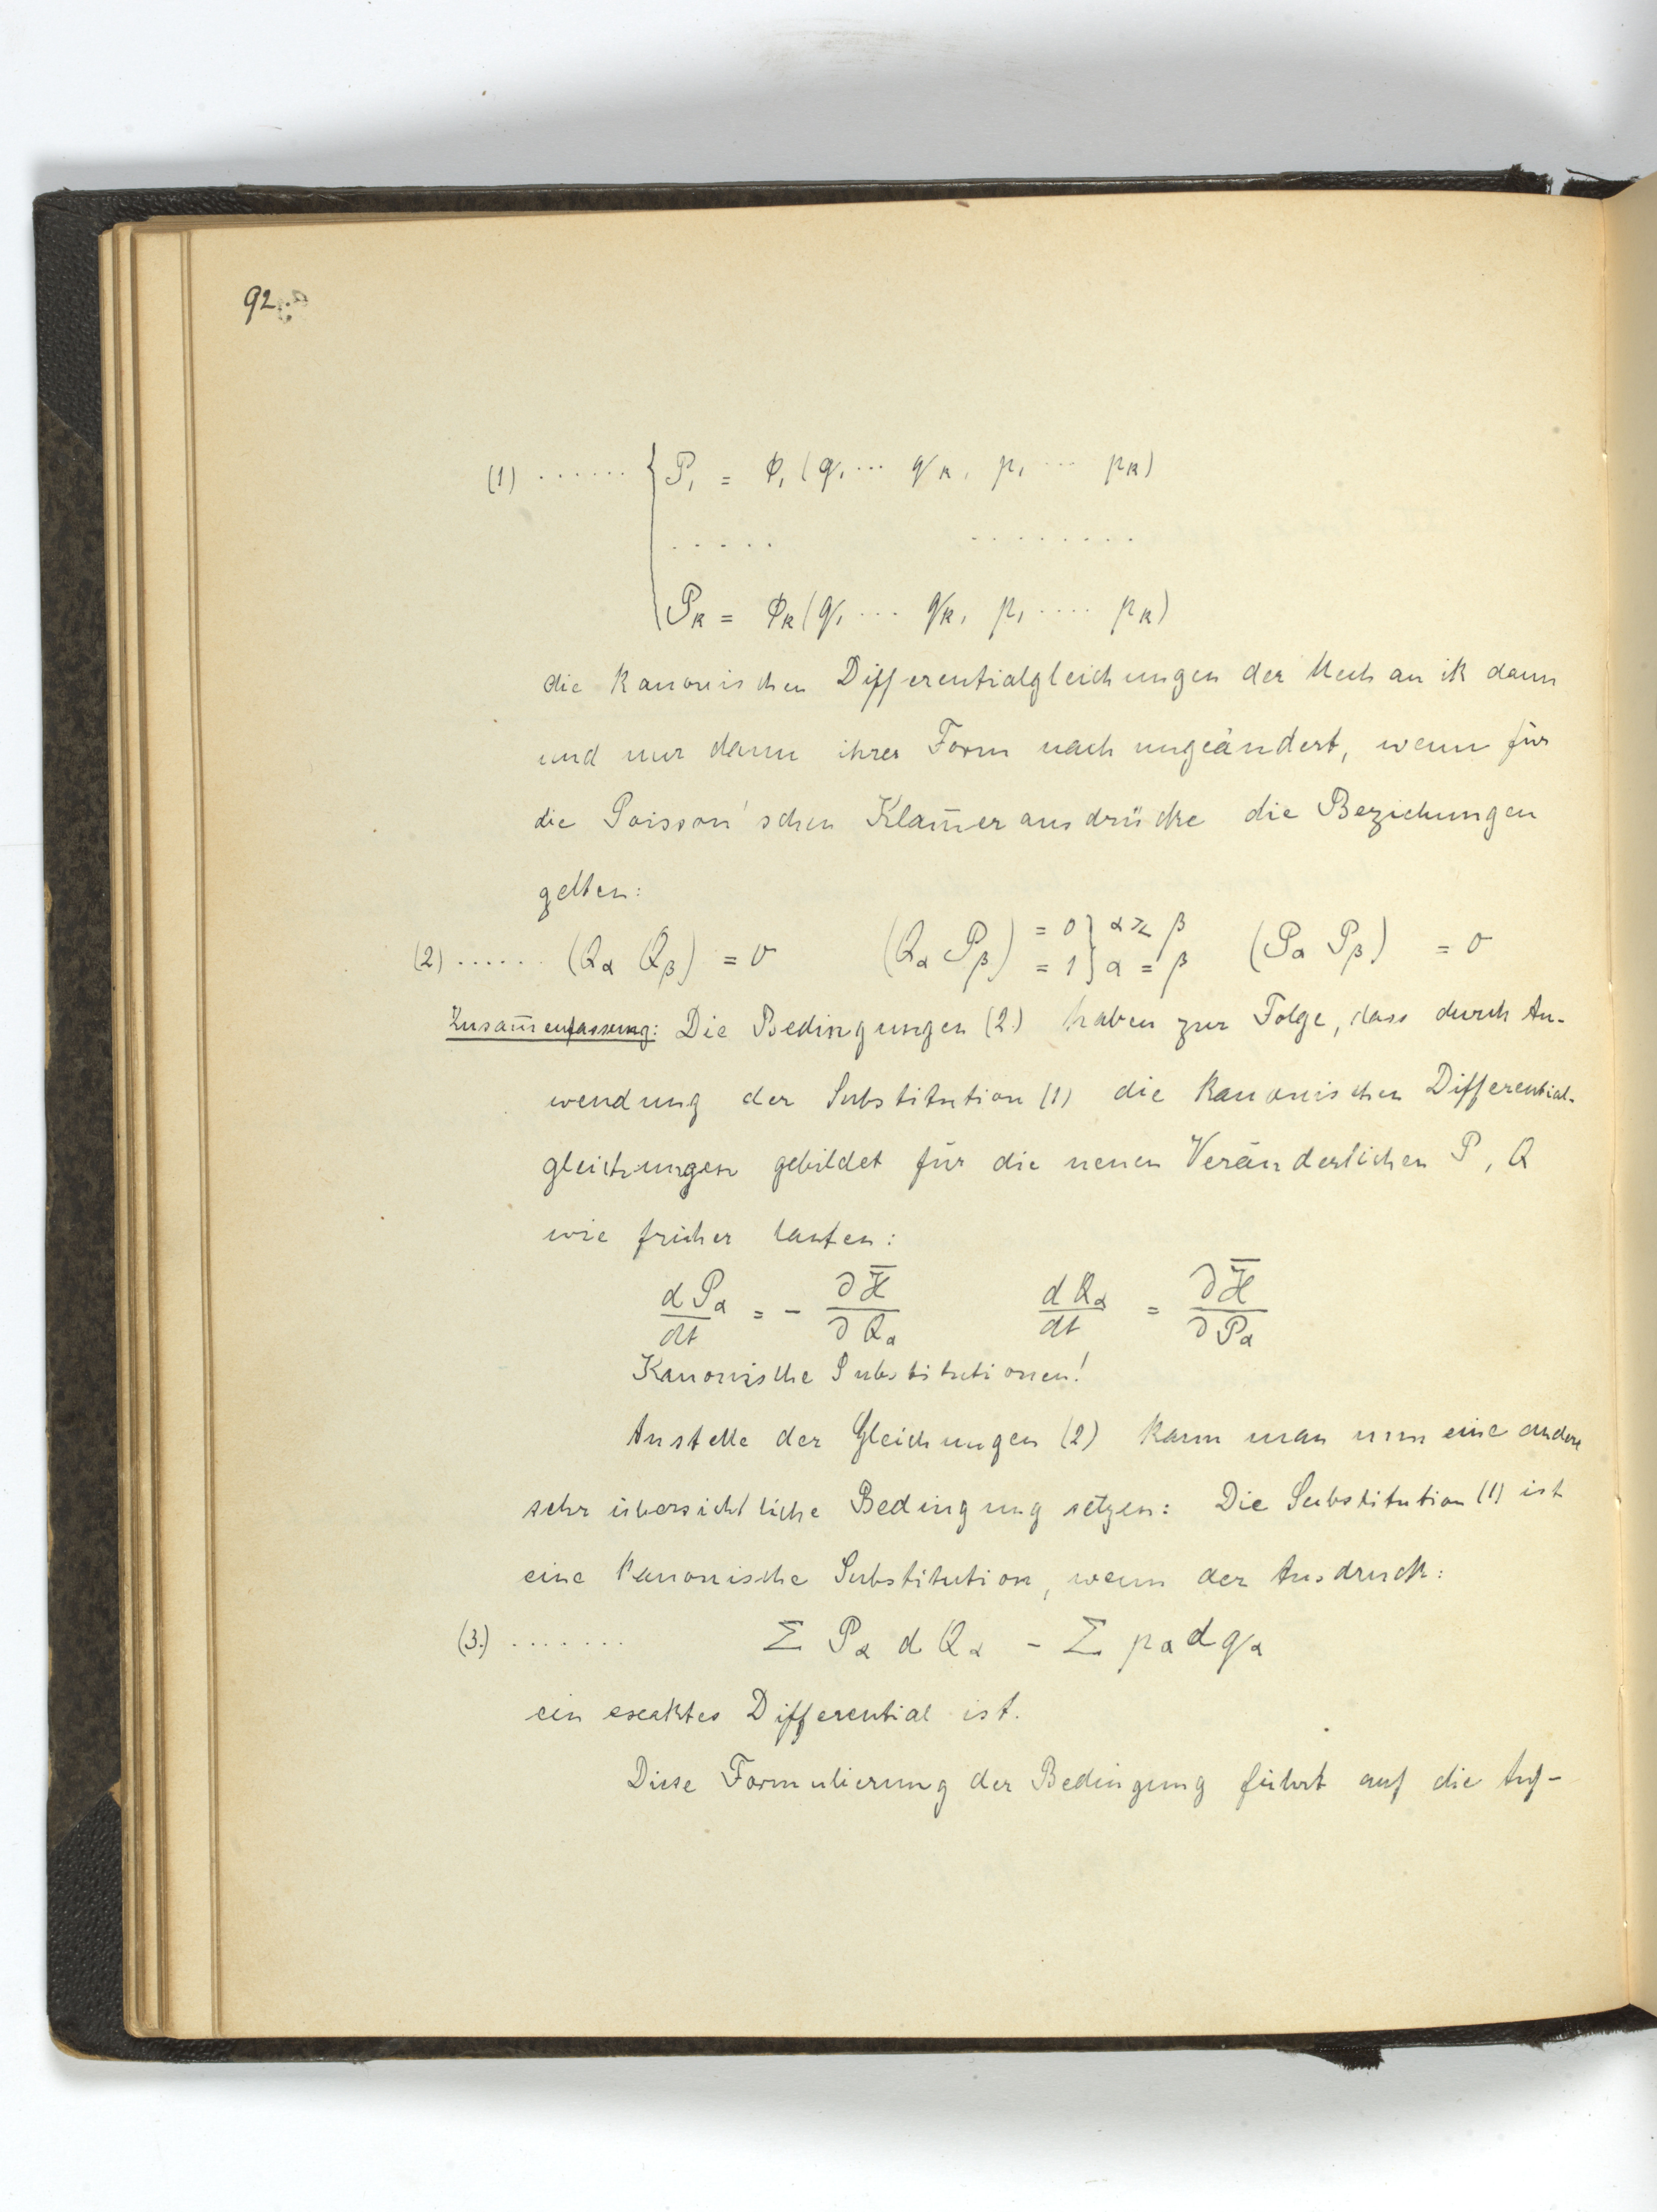 92.
(1) ...... { P₁ = φ₁ (q₁ ... qk, p₁ ... pk)
..... ........
Pk = φk (q₁ ... qk, p₁ .... pk)
die kanonischen Differentialgleichungen der Mechanik dann
und nur dann ihrer Form nach ungeändert, wenn für
die Poisson'schen Klam̅erausdrücke die Beziehungen
gelten:
(2) ...... (Qα Qβ) = 0 (Qα Pβ) = 0 } α ≷ β = 1 } α = β (Pα Pβ) = 0
Zusam̅enfassung: Die Bedingungen (2.) haben zur Folge, dass durch An-
wendung der Substitution (1) die kanonischen Differential-
gleichungen gebildet für die neuen Veränderlichen P, Q
wie früher lauten:
dPα/dt = - ∂H̅/∂Qα dQα/dt = ∂H̅/∂Pα
Kanonische Substitutionen!
Anstelle der Gleichungen (2) kann man nun eine andere
sehr übersichtliche Bedingung setzen: Die Substitution (1) ist
eine kanonische Substitution, wenn der Ausdruck:
(3.) ....... Σ Pα dQα - Σ pα dqα
ein exaktes Differential ist.
Diese Formulierung der Bedingung führt auf die Auf-